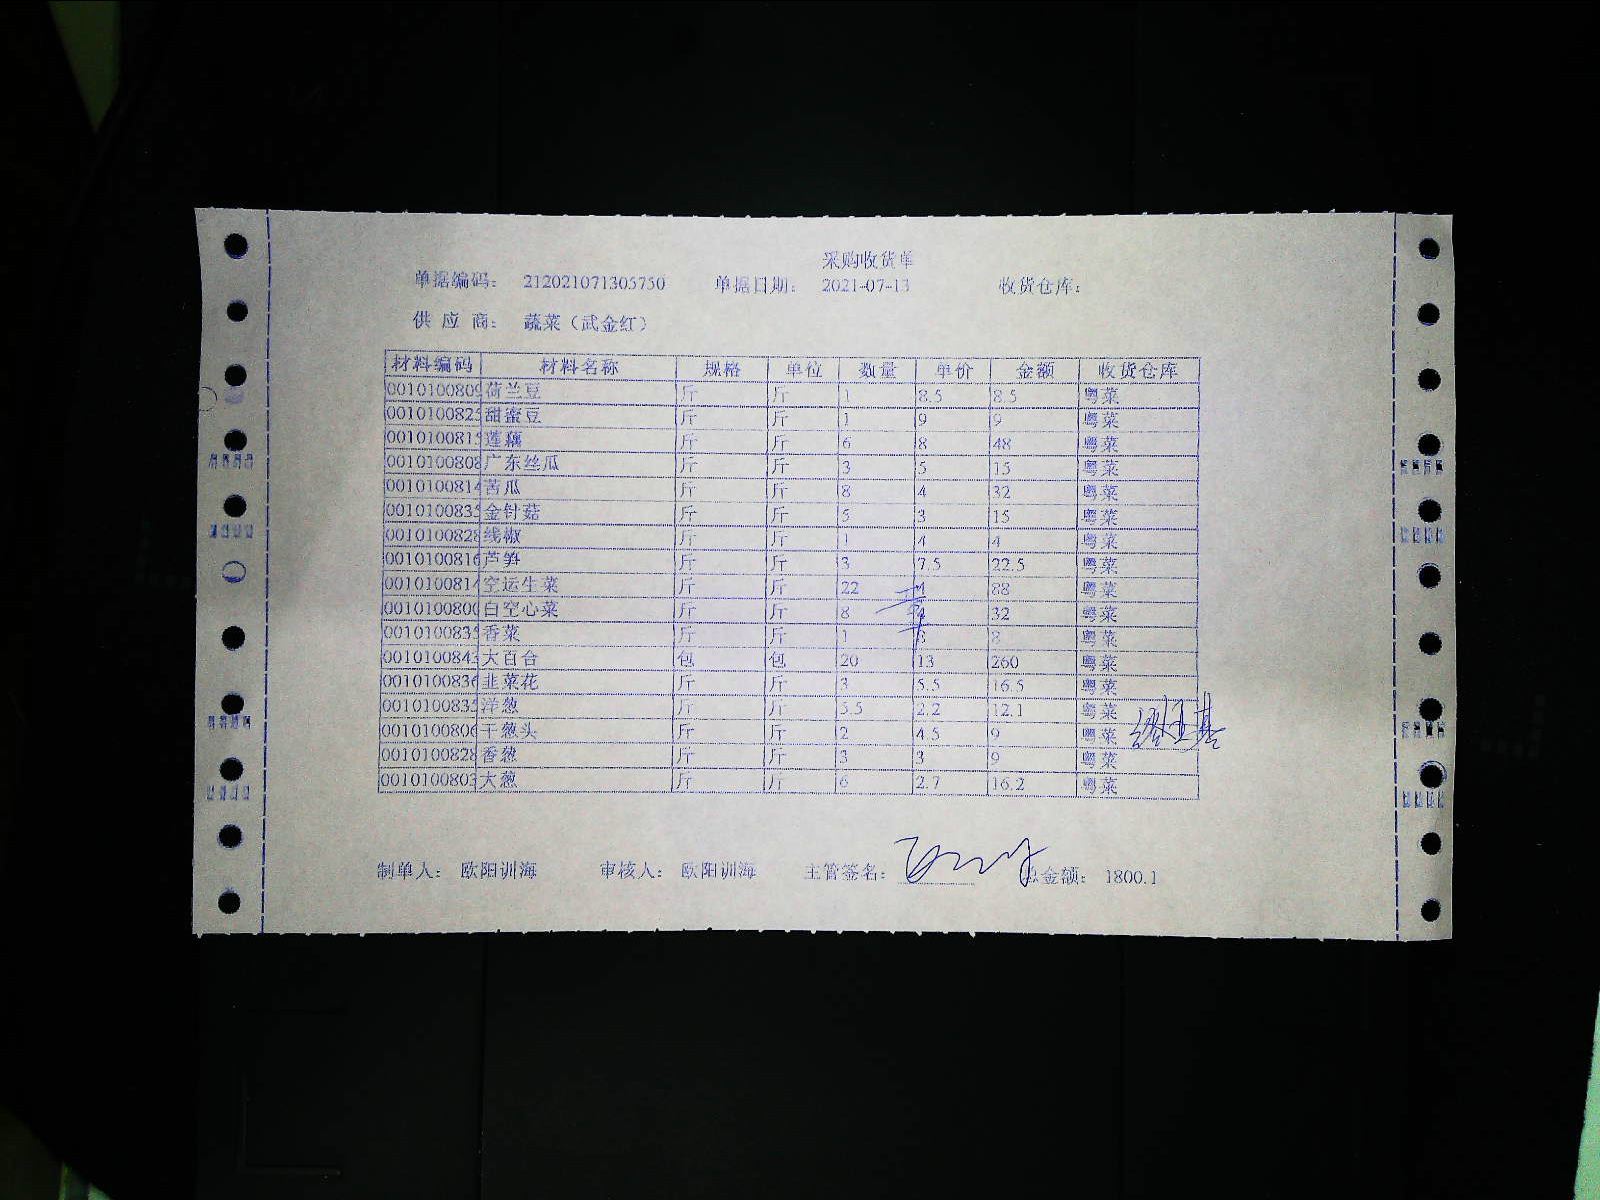 采购收货单
单据编码： 212021071305750 单据日期： 2021-07-13 收货仓库：
供 应 商： 蔬菜（武金红）
材料编码 材料名称 规格 单位 数量 单价 金额 收货仓库
0010100809 荷兰豆 斤 斤 1 8.5 8.5 粤菜
0010100825 甜蜜豆 斤 斤 1 9 9 粤菜
0010100815 莲藕 斤 斤 6 8 48 粤菜
0010100808 广东丝瓜 斤 斤 3 5 15 粤菜
0010100814 苦瓜 斤 斤 8 4 32 粤菜
0010100835 金针菇 斤 斤 5 3 15 粤菜
0010100828 线椒 斤 斤 1 4 4 粤菜
0010100816 芦笋 斤 斤 3 7.5 22.5 粤菜
0010100814 空运生菜 斤 斤 22 4 88 粤菜
0010100800 白空心菜 斤 斤 8 4 32 粤菜
0010100835 香菜 斤 斤 1 8 8 粤菜
0010100843 大百合 包 包 20 13 260 粤菜
0010100836 韭菜花 斤 斤 3 5.5 16.5 粤菜
0010100835 洋葱 斤 斤 5.5 2.2 12.1 粤菜
0010100806 干葱头 斤 斤 2 4.5 9 粤菜
0010100828 香葱 斤 斤 3 3 9 粤菜
0010100803 大葱 斤 斤 6 2.7 16.2 粤菜
制单人： 欧阳训海 审核人： 欧阳训海 主管签名： 总金额： 1800.1